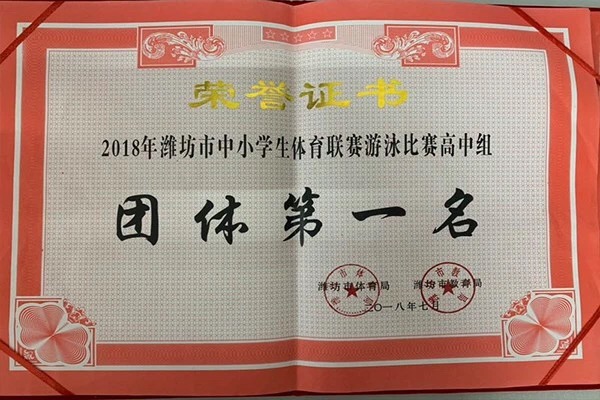 荣誉证书
2018年潍坊市中小学生体育联赛游泳比赛高中组
团体第一名
潍坊市体育局 潍坊市教育局
二〇一八年七月